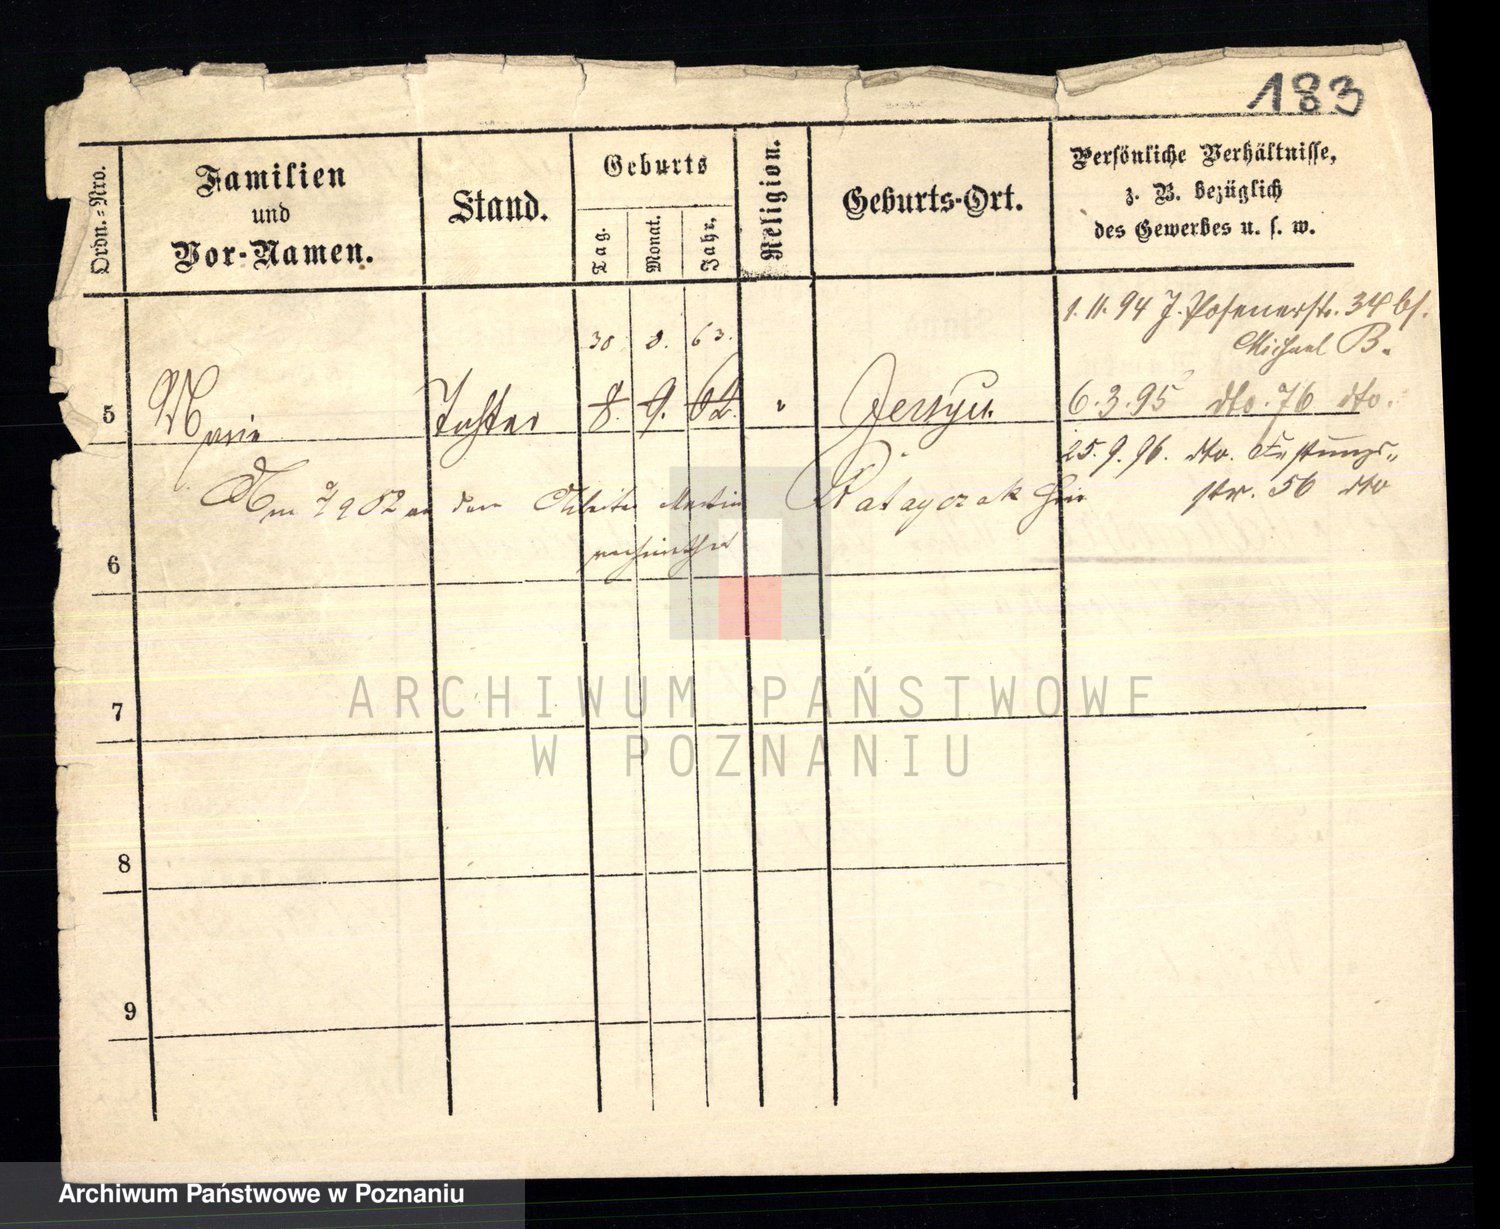 183
Ordn.=Nro.
Familien
und
Vor-Namen.
Stand.
Geburts
Tag.
Monat.
Jahr.
Religion.
Geburts-Ort.
Persönliche Verhältnisse,
z. B. bezüglich
des Gewerbes u. s. w.
1. 11. 94 J. Posenerstr. 34 bs.
Michael B.
30. 8. 63.
5 Marie Tochter 8. 9. 62. " Jerzyce 6. 3. 95 dto. 76 dto.
25. 9. 96. dto. Festungs-
str. 56 dto
Am 82 an den Arbeiter Martin Ratayczak hier
verheirathet
6
7
8
9
ARCHIWUM PAŃSTWOWE
W POZNANIU
Archiwum Państwowe w Poznaniu